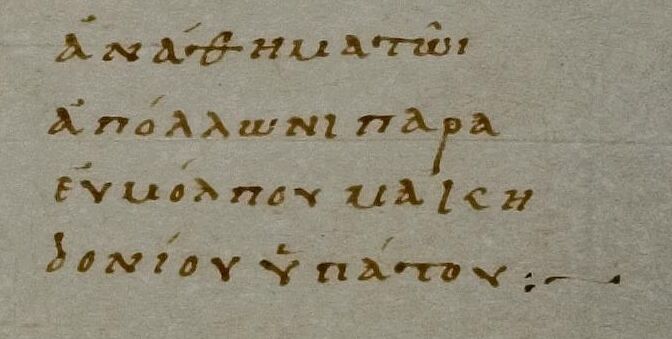 ἀνάθημα τῶι
ἀπόλλωνι παρα
ἐυμόλπου μακη
δονίου ὑπάτου :~